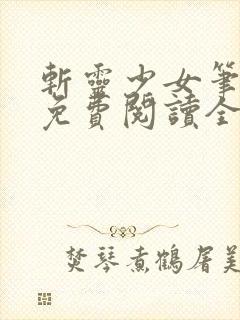 斬靈少女筆
免費閱讀全
焚琴煮鶴屠美